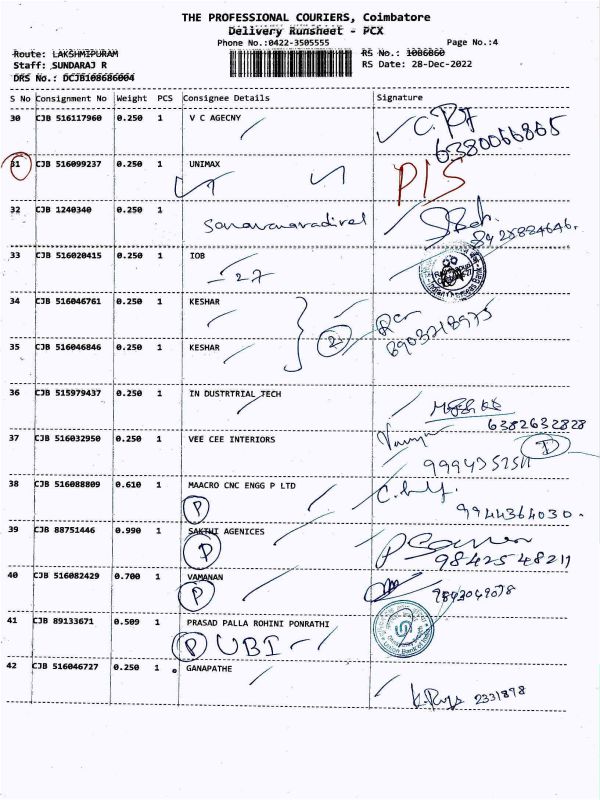 THE PROFESSIONAL COURIERS, Coimbatore
Delivery Runsheet - PCX
Phone No.:0422-3505555 Page No.:4
Route: LAKSHMIPURAM RS No.: 1086860
Staff: SUNDARAJ R RS Date: 28-Dec-2022
DRS No.: DCJB108686004
S No Consignment No Weight PCS Consignee Details Signature
30 CJB 516117960 0.250 1 V C AGECNY
6380066865
31 CJB 516099237 0.250 1 UNIMAX P/S
32 CJB 1240340 0.250 1
33 CJB 516020415 0.250 1 IOB
27
34 CJB 516046761 0.250 1 KESHAR
2 8903218975
35 CJB 516046846 0.250 1 KESHAR
36 CJB 515979437 0.250 1 IN DUSTRTRIAL TECH
6382632828
37 CJB 516032950 0.250 1 VEE CEE INTERIORS
38 CJB 516088809 0.610 1 MAACRO CNC ENGG P LTD
P 9944364030.
39 CJB 88751446 0.990 1 SAKTHI AGENICES
P 9842548211
40 CJB 516082429 0.700 1 VAMANAN
P 9843049078
41 CJB 89133671 0.509 1 PRASAD PALLA ROHINI PONRATHI
P UBI
42 CJB 516046727 0.250 1 GANAPATHE
2331898